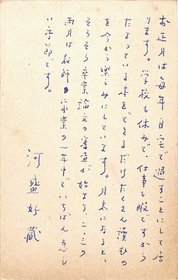 お正月は毎年自宅で過すことにして居
ります。学校も休みで、仕事も暇ですから
たまっている本をできるだけたくさん読むの
を今から楽しみにしています。月末になると、
そろそろ卒業論文の審査が始まる、この
両月は教師
家業の一年中でいちばん忙し
い季節です。
河盛好蔵